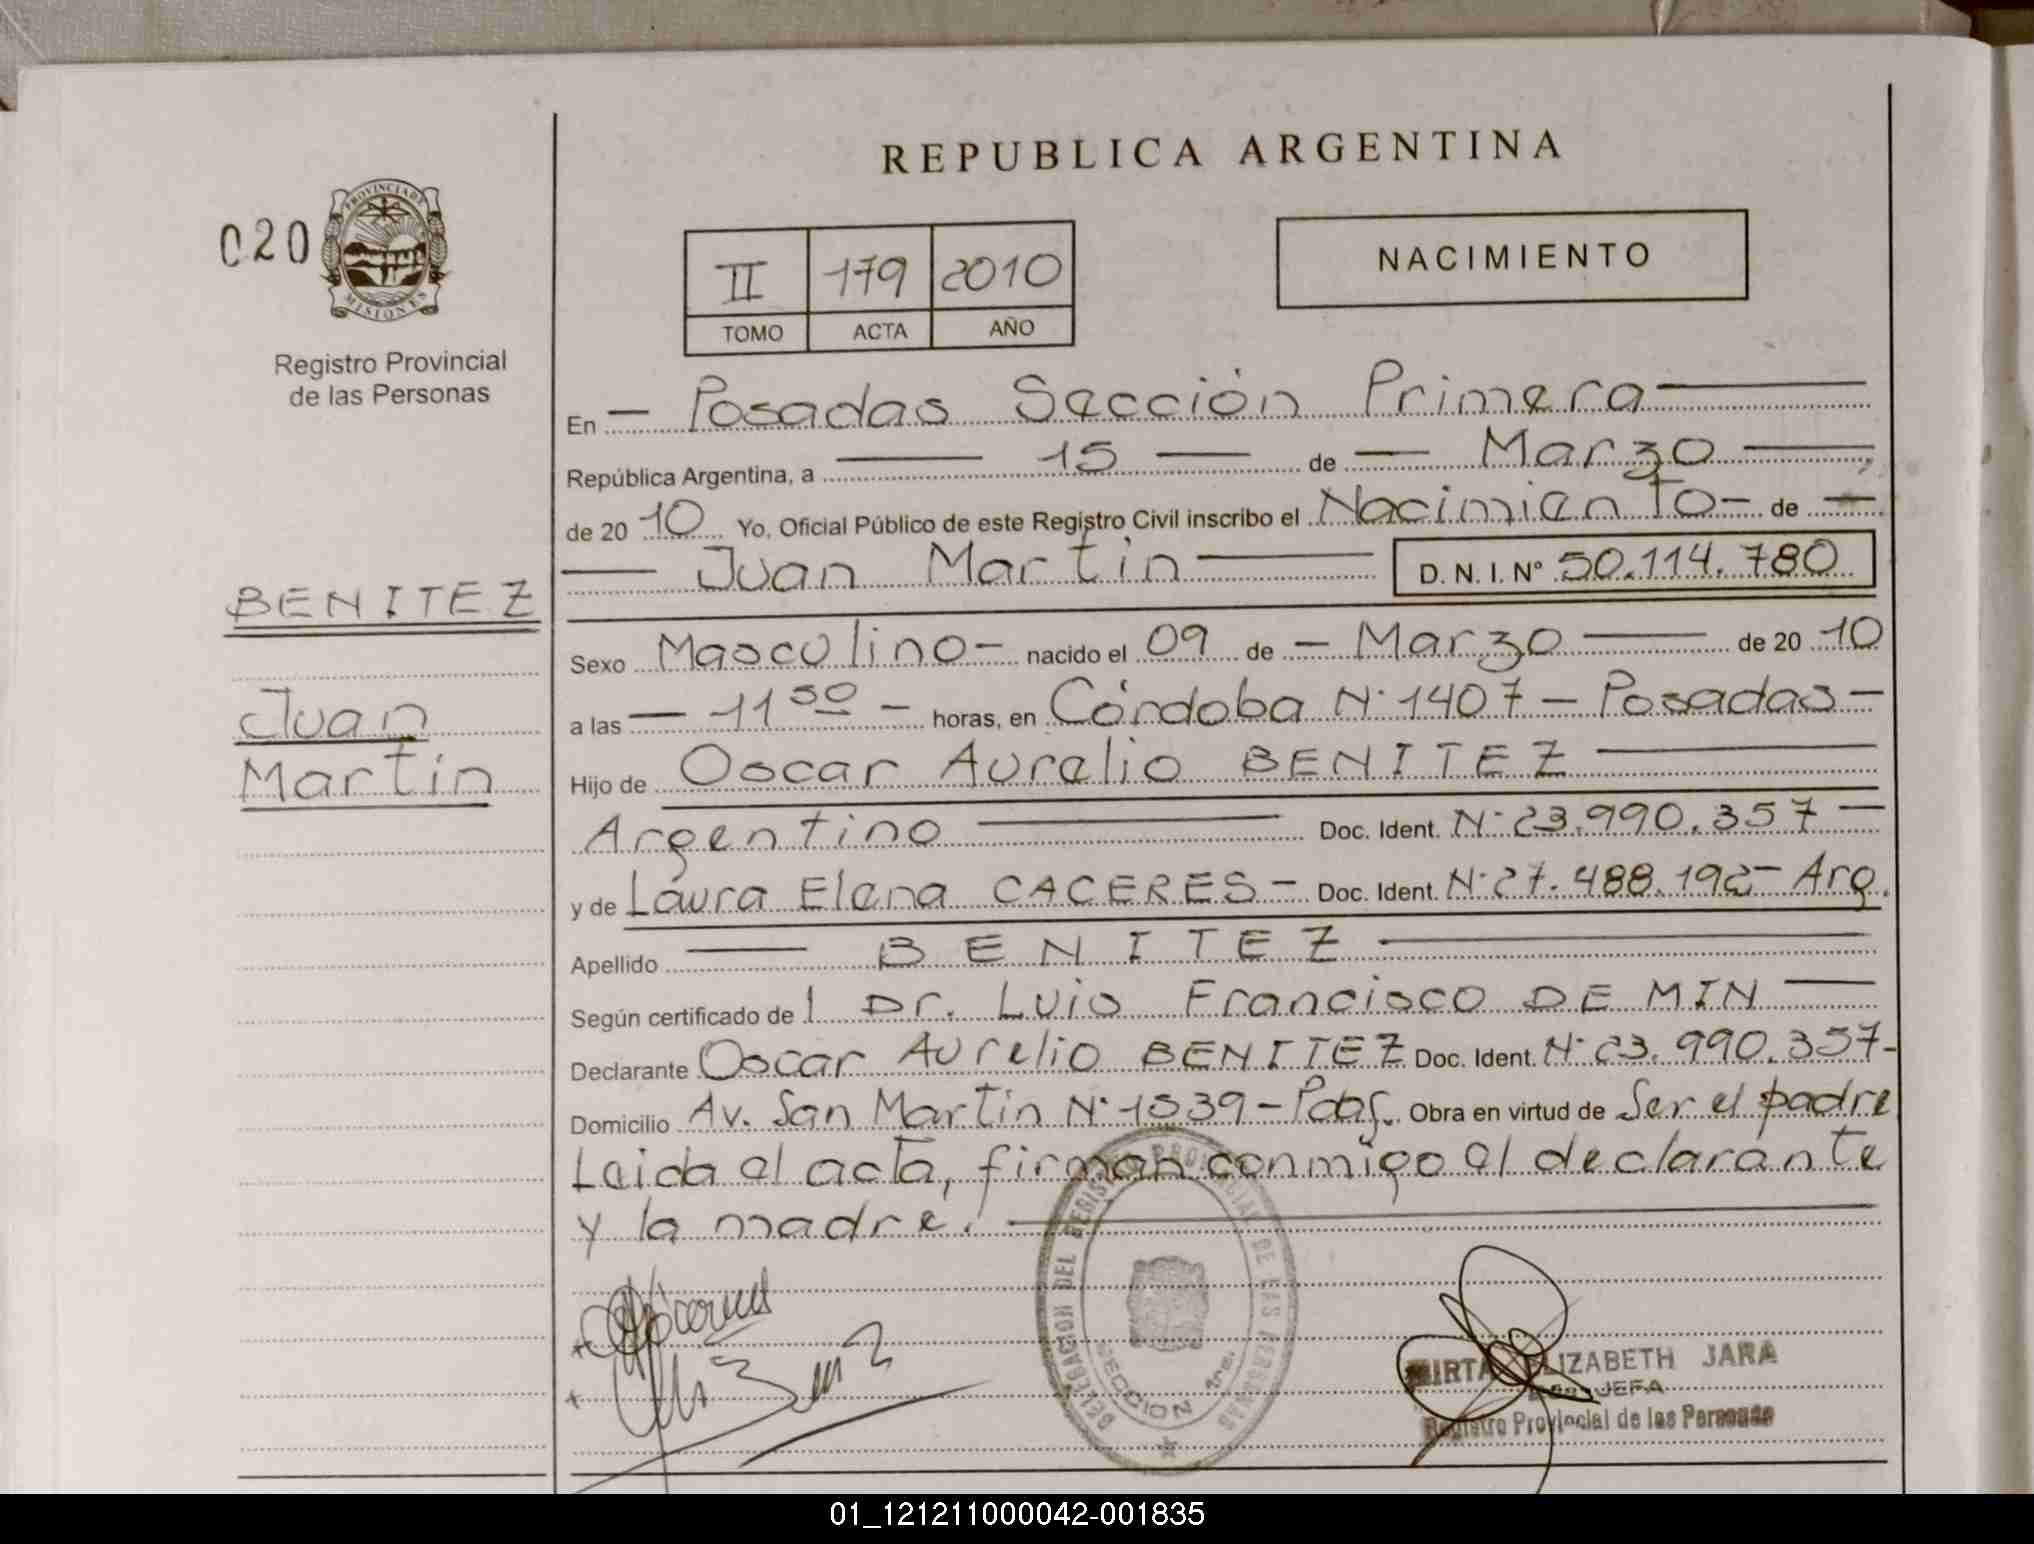 REPUBLICA ARGENTINA
020
PROVINCIA DE
MISIONES
Registro Provincial
de las Personas
II 179 2010
TOMO ACTA AÑO
NACIMIENTO
En — Posadas Sección Primera —
República Argentina, a — 15 — de — Marzo —,
de 20 10 Yo, Oficial Público de este Registro Civil inscribo el Nacimiento — de —
— Juan Martin — D. N. I. Nº 50.114.780
BENITEZ
Juan
Martin
Sexo Masculino — nacido el 09 de — Marzo — de 20 10
a las — 11 50 — horas, en Córdoba Nº 1407 — Posadas —
Hijo de Oscar Aurelio BENITEZ —
Argentino — Doc. Ident. Nº 23.990.357 —
y de Laura Elena CACERES — Doc. Ident. Nº 27.488.192 — Arg.
Apellido — BENITEZ —
Según certificado de l Dr. Luis Francisco DE MIN —
Declarante Oscar Aurelio BENITEZ Doc. Ident. Nº 23.990.357 —
Domicilio Av. San Martin Nº 1539 — Pdas. Obra en virtud de Ser el padre
Leida el acta, firman conmigo el declarante
y la madre. —
DELEGACION DEL REGISTRO PROVINCIAL DE LAS PERSONAS
SECCION 1ra.
MIRTA ELIZABETH JARA
JEFA
Registro Provincial de las Personas
01_121211000042-001835